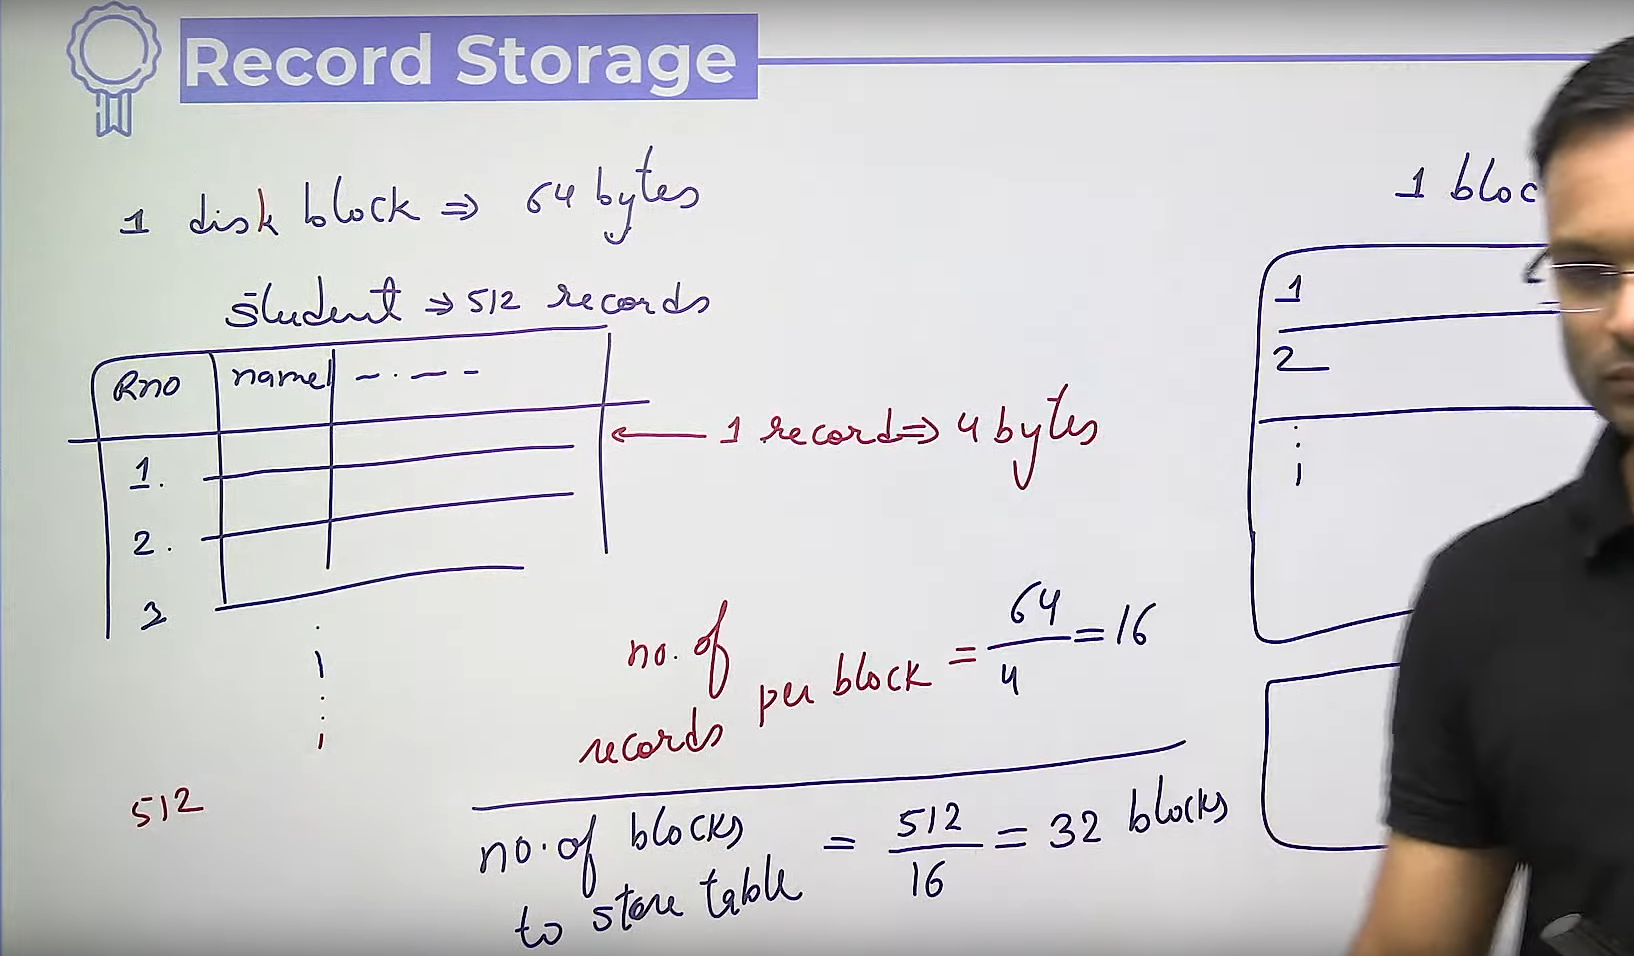 Record Storage
1 disk block ⇒ 64 bytes
student ⇒ 512 records
Rno name - . - -
1.
2.
3
512
← 1 record ⇒ 4 bytes
no. of records per block = 64/4 = 16
no. of blocks to store table = 512/16 = 32 blocks
1 bloc
1
2